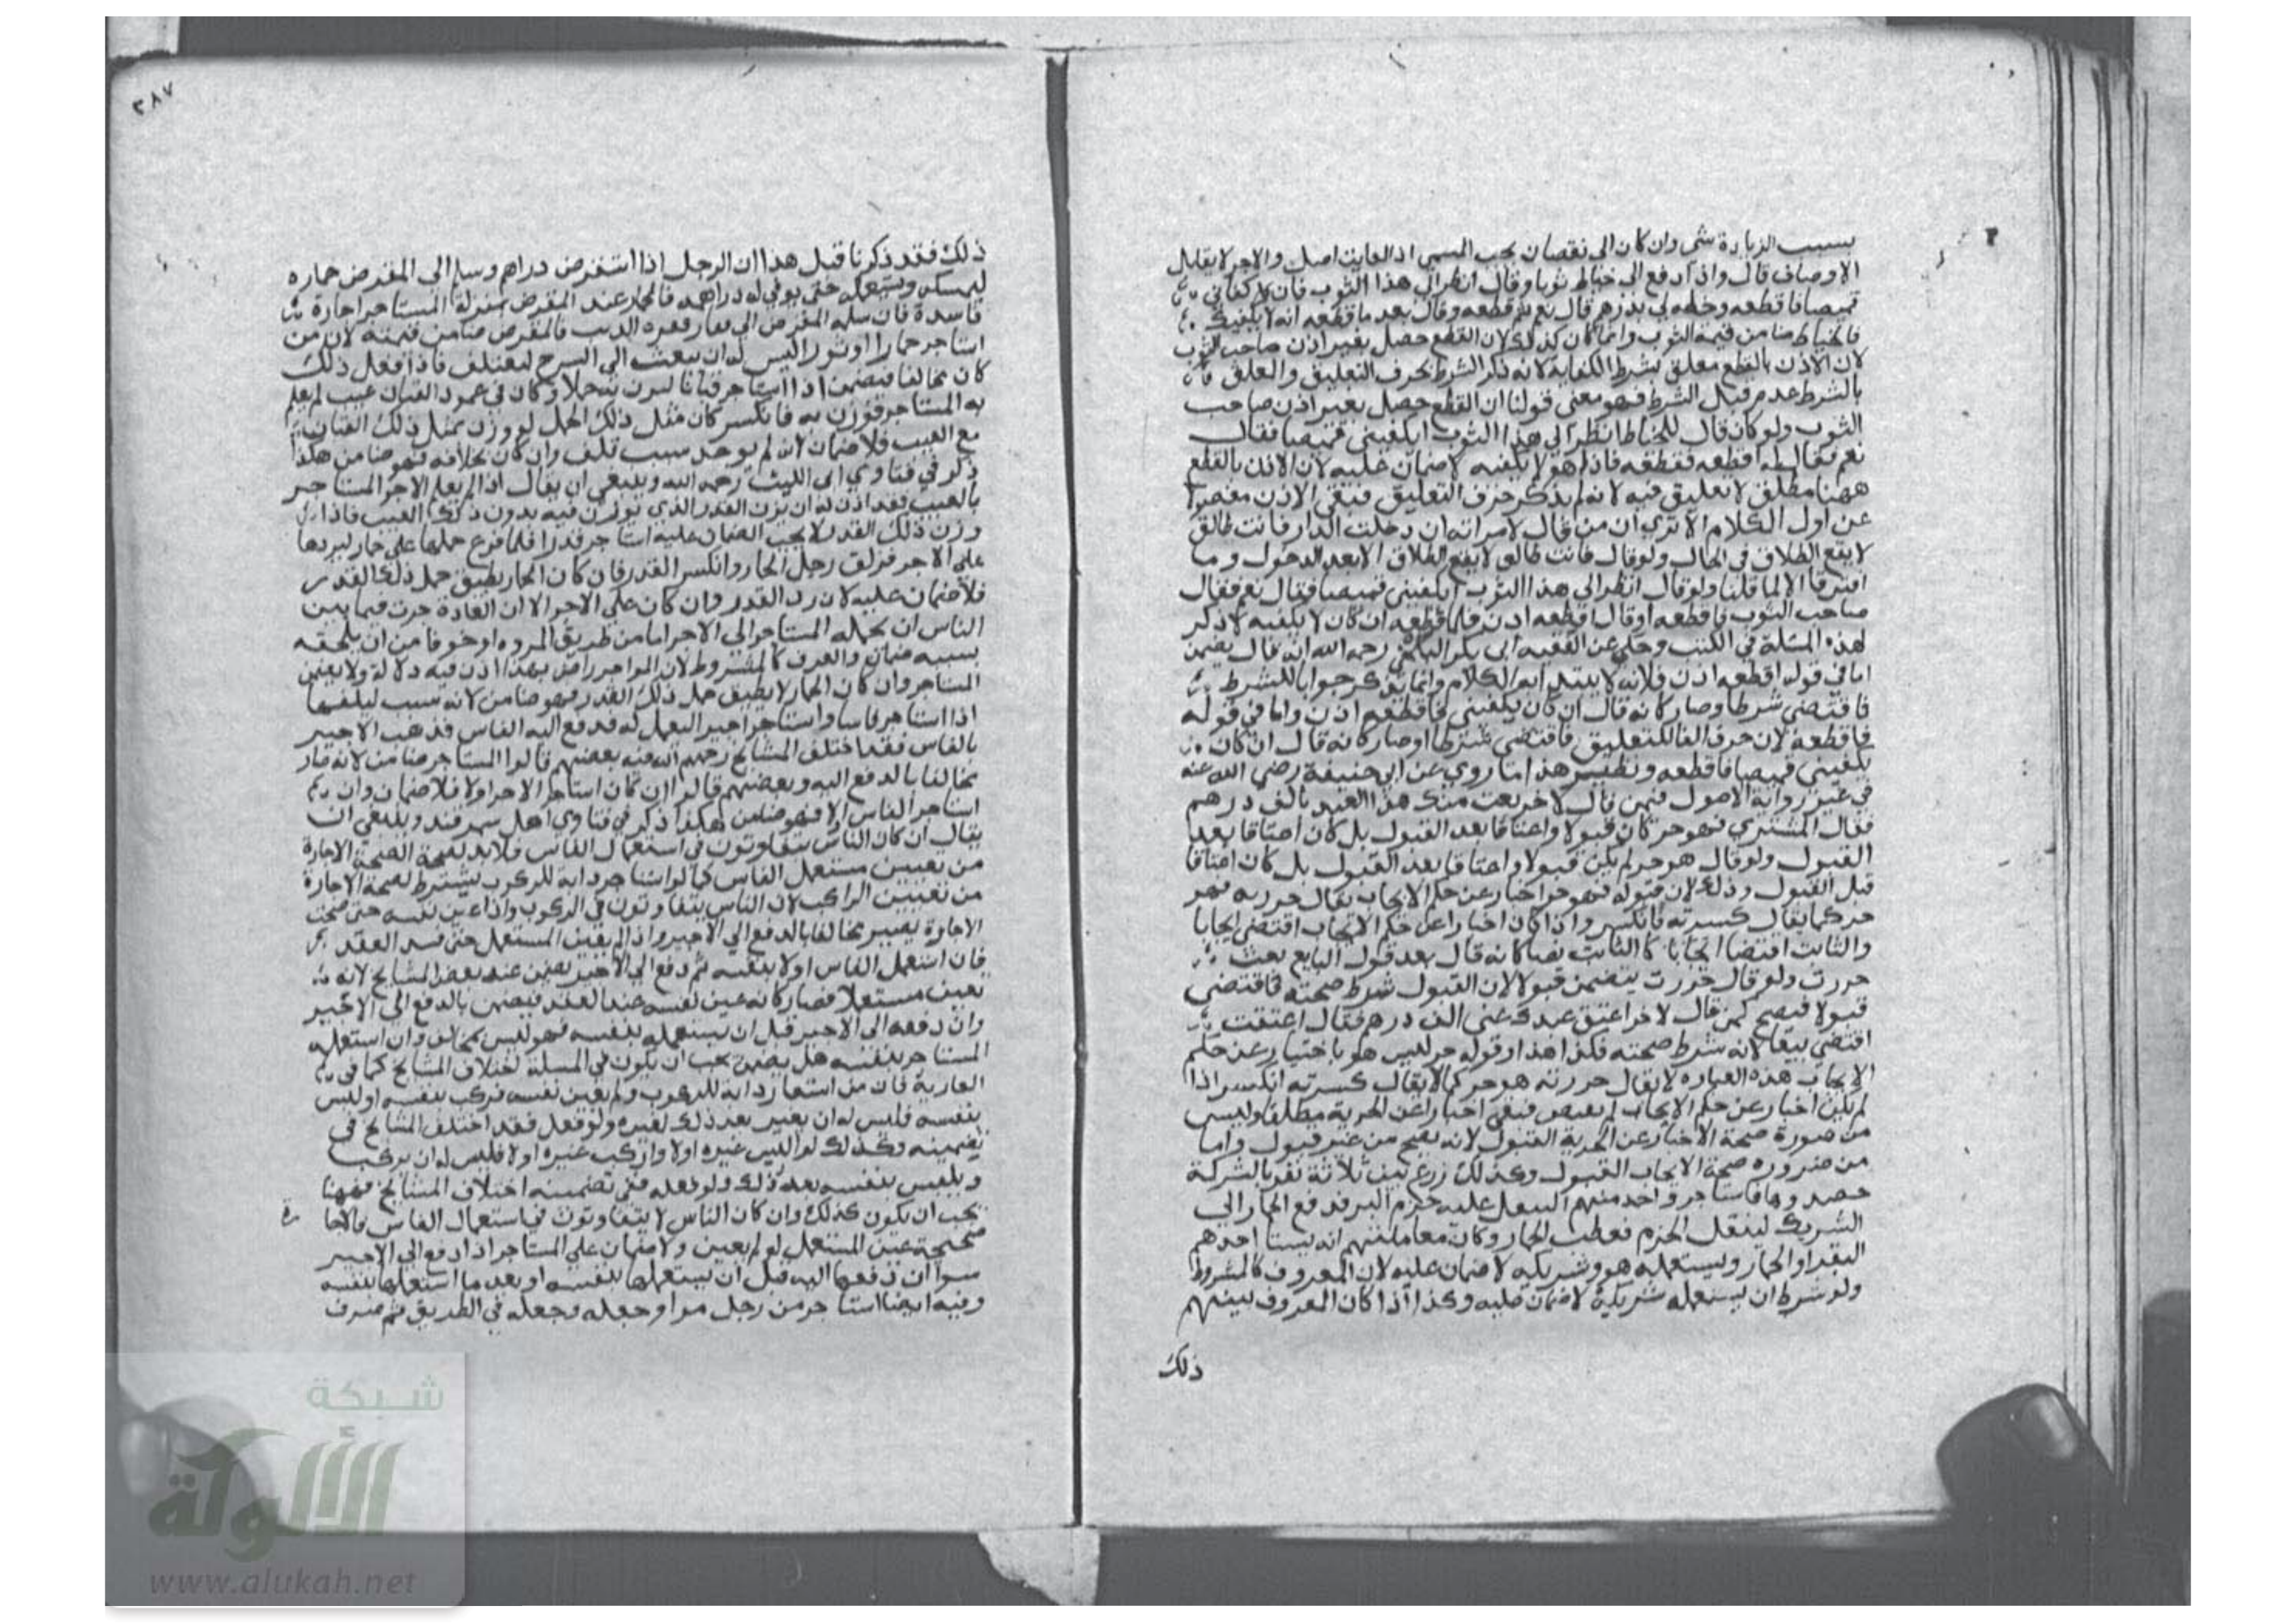 بسبب الزيادة شي وان كان الى نقصان يجب المسمى اذ الفايت اصل والاجر لا يقابل
الاوصاف قال واذا دفع الى خياط ثوبا وقال انظر الى هذا الثوب فان كفاني
قميصا فاقطعه وخطه لي بدرهم قال نعم ثم قطعه وقال بعد ما قطعه انه لا يكفيك
فالخياط ضامن قيمة الثوب وانما كان كذلك لان القطع حصل بغير اذن صاحب الثوب
لان الاذن بالقطع معلق بشرط الكفاية لانه ذكر الشرط بحرف التعليق والمعلق
بالشرط عدم قبل الشرط فهو معنى قولنا ان القطع حصل بغير اذن صاحب
الثوب ولو كان قال للخياط انظر الى هذا الثوب ايكفيني قميصا فقال
نعم فقال له اقطعه فقطعه فاذا هو لا يكفيه لا ضمان عليه لان الاذن بالقطع
ههنا مطلق لا تعليق فيه لانه لم يذكر حرف التعليق فبقي الاذن مفصولا
عن اول الكلام الا ترى ان من قال لامراته ان دخلت الدار فانت طالق
لا يقع الطلاق في الحال ولو قال فانت طالق لا يقع الطلاق الا بعد الدخول وما
افترقا الا لما قلنا ولو قال انظر الى هذا الثوب ايكفيني قميصا فقال نعم فقال
صاحب الثوب فاقطعه او قال اقطعه اذن فلما قطعه ان كان لا يكفيه لا ذكر
لهذه المسئلة في الكتب وحكي عن الفقيه ابي بكر البلخي رحمه الله انه قال يضمن
اما في قوله اقطعه اذن فلانه لا يبتدا به الكلام وانما يذكر جوابا للشرط
فاقتضى شرطا وصار كانه قال ان كان يكفيني فاقطعه اذن واما في قوله
فاقطعه لان حرف الفا للتعليق فاقتضى شرطا وصار كانه قال ان كان
يكفيني قميصا فاقطعه ونظير هذا ما روي عن ابي حنيفة رضي الله عنه
في غير رواية الاصول فيمن قال لاخر بعت منك هذا العبد بالف درهم
فقال المشتري فهو حر كان قبولا واعتاقا بعد القبول بل كان اعتاقا بعد
القبول ولو قال هو حر لم يكن قبولا واعتاقا بعد القبول بل كان اعتاقا
قبل القبول وذلك لان قوله فهو حر اخبار عن حكم الايجاب يقال حررته فهو
حر كما يقال كسرته فانكسر واذا كان اخبارا عن حكم الايجاب اقتضى ايجابا
والثابت اقتضا ايجابا كالثابت نصا كانه قال بعد قول البايع بعت
حررت ولو قال حررت يتضمن قبولا لان القبول شرط صحته فاقتضى
قبولا فيصح كمن قال لاخر اعتق عبدك عني الف درهم فقال اعتقت
اقتضى بيعا لانه شرط صحته فكذا هذا وقوله حر ليس هو باختيار عن حكم
الايجاب هذه العباره لا يقال حررته هو حر كما لا يقال كسرته انكسر اذا
لم يكن اخبار عن حكم الايجاب لم يقتض فبقي اخبارا عن الحرية مطلقا وليس
من ضرورة صحة الاخبار عن الحرية القبول لانه يصح من غير قبول واما
من ضروره صحة الايجاب القبول وكذلك زرع بين ثلاثة نفر بالشركة
حصدوها فاستاجر واحد منهم لينقل عليه حزم البر فدفع الحمار الى
الشريك لينقل الحزم فعطب الحمار وكان معاملتهم انه يستاجر احدهم
البقر او الحمار ويستعمله هو وشريكه لا ضمان عليه لان المعروف كالمشروط
ولو شرط ان يستعمله شريكه لا ضمان عليه وكذا اذا كان المعروف بينهم
ذلك
٣٨٧
ذلك فقد ذكرنا قبل هذا ان الرجل اذا استقرض دراهم وسلم الى المقرض حماره
ليمسكه ويستعمله حتى يوفي له دراهمه فالحمار عند المقرض بمنزلة المستاجر اجارة
فاسدة فان سلمه المقرض الى بقار فعقره الذيب فالمقرض ضامن قيمته لان من
استاجر حمارا او ثورا ليس له ان يبعث الى السرح ليعتلف فاذا فعل ذلك
كان مخالفا فيضمن اذا استاجر قبانا ليزن به حملا وكان في عمود القبان عيب لم يعلم
به المستاجر فوزن به فانكسر كان مثل ذلك الحمل لو وزن بمثل ذلك القبان
مع العيب فلا ضمان لانه لم يوجد سبب تلف وان كان بخلافه فهو ضامن هكذا
ذكر في فتاوي ابي الليث رحمه الله وينبغي ان يقال اذا لم يعلم الاجر المستاجر
بالعيب فقد اذن له ان يزن القدر الذي يوزن فيه بدون ذلك العيب فاذا
وزن ذلك القدر لا يجب الضمان عليه استاجر قدرا فلما فرغ حملها على حمار ليردها
على الاجر فزلق رجل الحمار وانكسر القدر فان كان الحمار يطيق حمل ذلك القدر
فلا ضمان عليه لان رد القدر وان كان على الاجر الا ان العادة جرت فيما بين
الناس ان يحمله المستاجر الى الاجر اما من طريق المروه او خوفا من ان يلحقه
بسببه ضمان والعرف كالمشروط لان المواجر راض بهذا اذن فيه دلالة ولا يضمن
المستاجر وان كان الحمار لا يطيق حمل ذلك القدر فهو ضامن لانه سبب ليلفها
اذا استاجر فاسا واستاجر اجيرا ليعمل له فدفع اليه الفاس فذهب الاجير
بالفاس فقد اختلف المشايخ رحمهم الله فيه بعضهم قالوا المستاجر ضامن لانه صار
مخالفا بالدفع اليه وبعضهم قالوا ان كان استاجر الاجر اولا فلا ضمان وان
استاجر الفاس اولا فهو ضامن هكذا ذكر في فتاوي اهل سمرقند وينبغي ان
يقال ان كان الناس يتفاوتون في استعمال الفاس فلا بد لصحة الاجارة
من تعيين مستعمل الفاس كما لو استاجر دابه للركوب يشترط لصحة الاجارة
من تعيين الراكب لان الناس يتفاوتون في الركوب واذا عين نفسه حتى صحت
الاجارة يصير مخالفا بالدفع الى الاجير واذا لم يعين المستعمل حتى فسد العقد
فان استعمل الفاس اولا بنفسه ثم دفع الى الاجير يضمن عند بعض المشايخ لانه
تعين مستعملا فصار كانه عين نفسه عند العقد فيضمن بالدفع الى الاجير
وان دفعه الى الاجير قبل ان يستعمله بنفسه فهو ليس بمخالف وان استعمله
المستاجر بنفسه هل يضمن يجب ان يكون في المسئلة اختلاف المشايخ كما في
العارية فان من استعار دابة للركوب ولم يعين نفسه فركب بنفسه او لبس
بنفسه فليس له ان يعير بعد ذلك لغيره ولو فعل فقد اختلف المشايخ في
تضمينه وكذلك لو البس غيره اولا واركب غيره اولا فليس له ان يركب
ويلبس بنفسه بعد ذلك ولو فعله ففي تضمينه اختلاف المشايخ فههنا
يجب ان يكون كذلك وان كان الناس لا يتفاوتون في استعمال الفاس فالاجا
صحيحة عين المستعمل او لم يعين ولا ضمان على المستاجر اذا دفع الى الاجير
سوا ان دفعها اليه قبل ان يستعملها بنفسه او بعد ما استعملها بنفسه
وفيه ايضا استاجر من رجل مرا وجعله في الطريق ثم صرف
شبكة
الألوكة
www.alukah.net